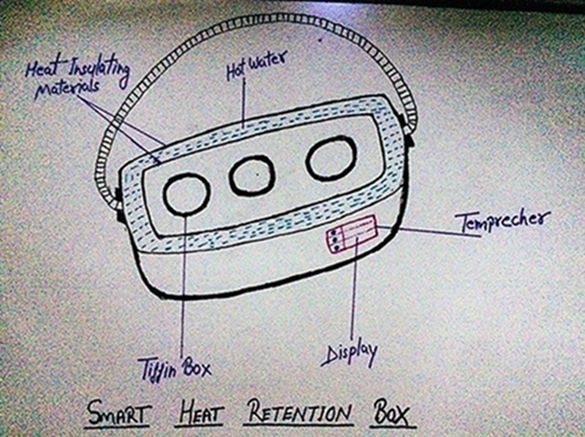 Heat Insulating
Materials
Hot Water
Temprecher
Tiffin Box
Display
SMART HEAT RETENTION BOX